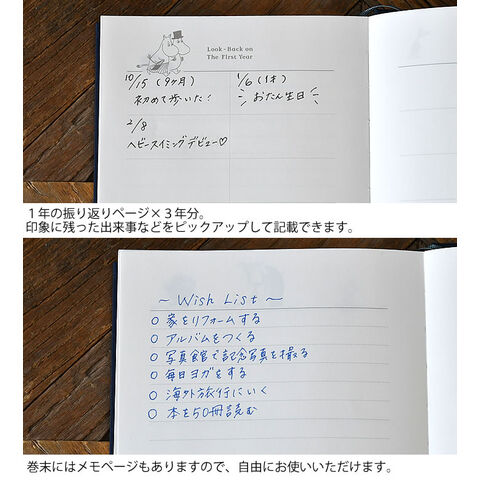 Look-Back on
The First Year
10/15 (9ヶ月)
初めて歩いた!
1/6 (1才)
おたん生日
2/8
ベビースイミングデビュー♡
1年の振り返りページ×3年分。
印象に残った出来事などをピックアップして記載できます。
~ Wish List ~
○ 家をリフォームする
○ アルバムをつくる
○ 写真館で記念写真を撮る
○ 毎日ヨガをする
○ 海外旅行にいく
○ 本を50冊読む
巻末にはメモページもありますので、自由にお使いいただけます。